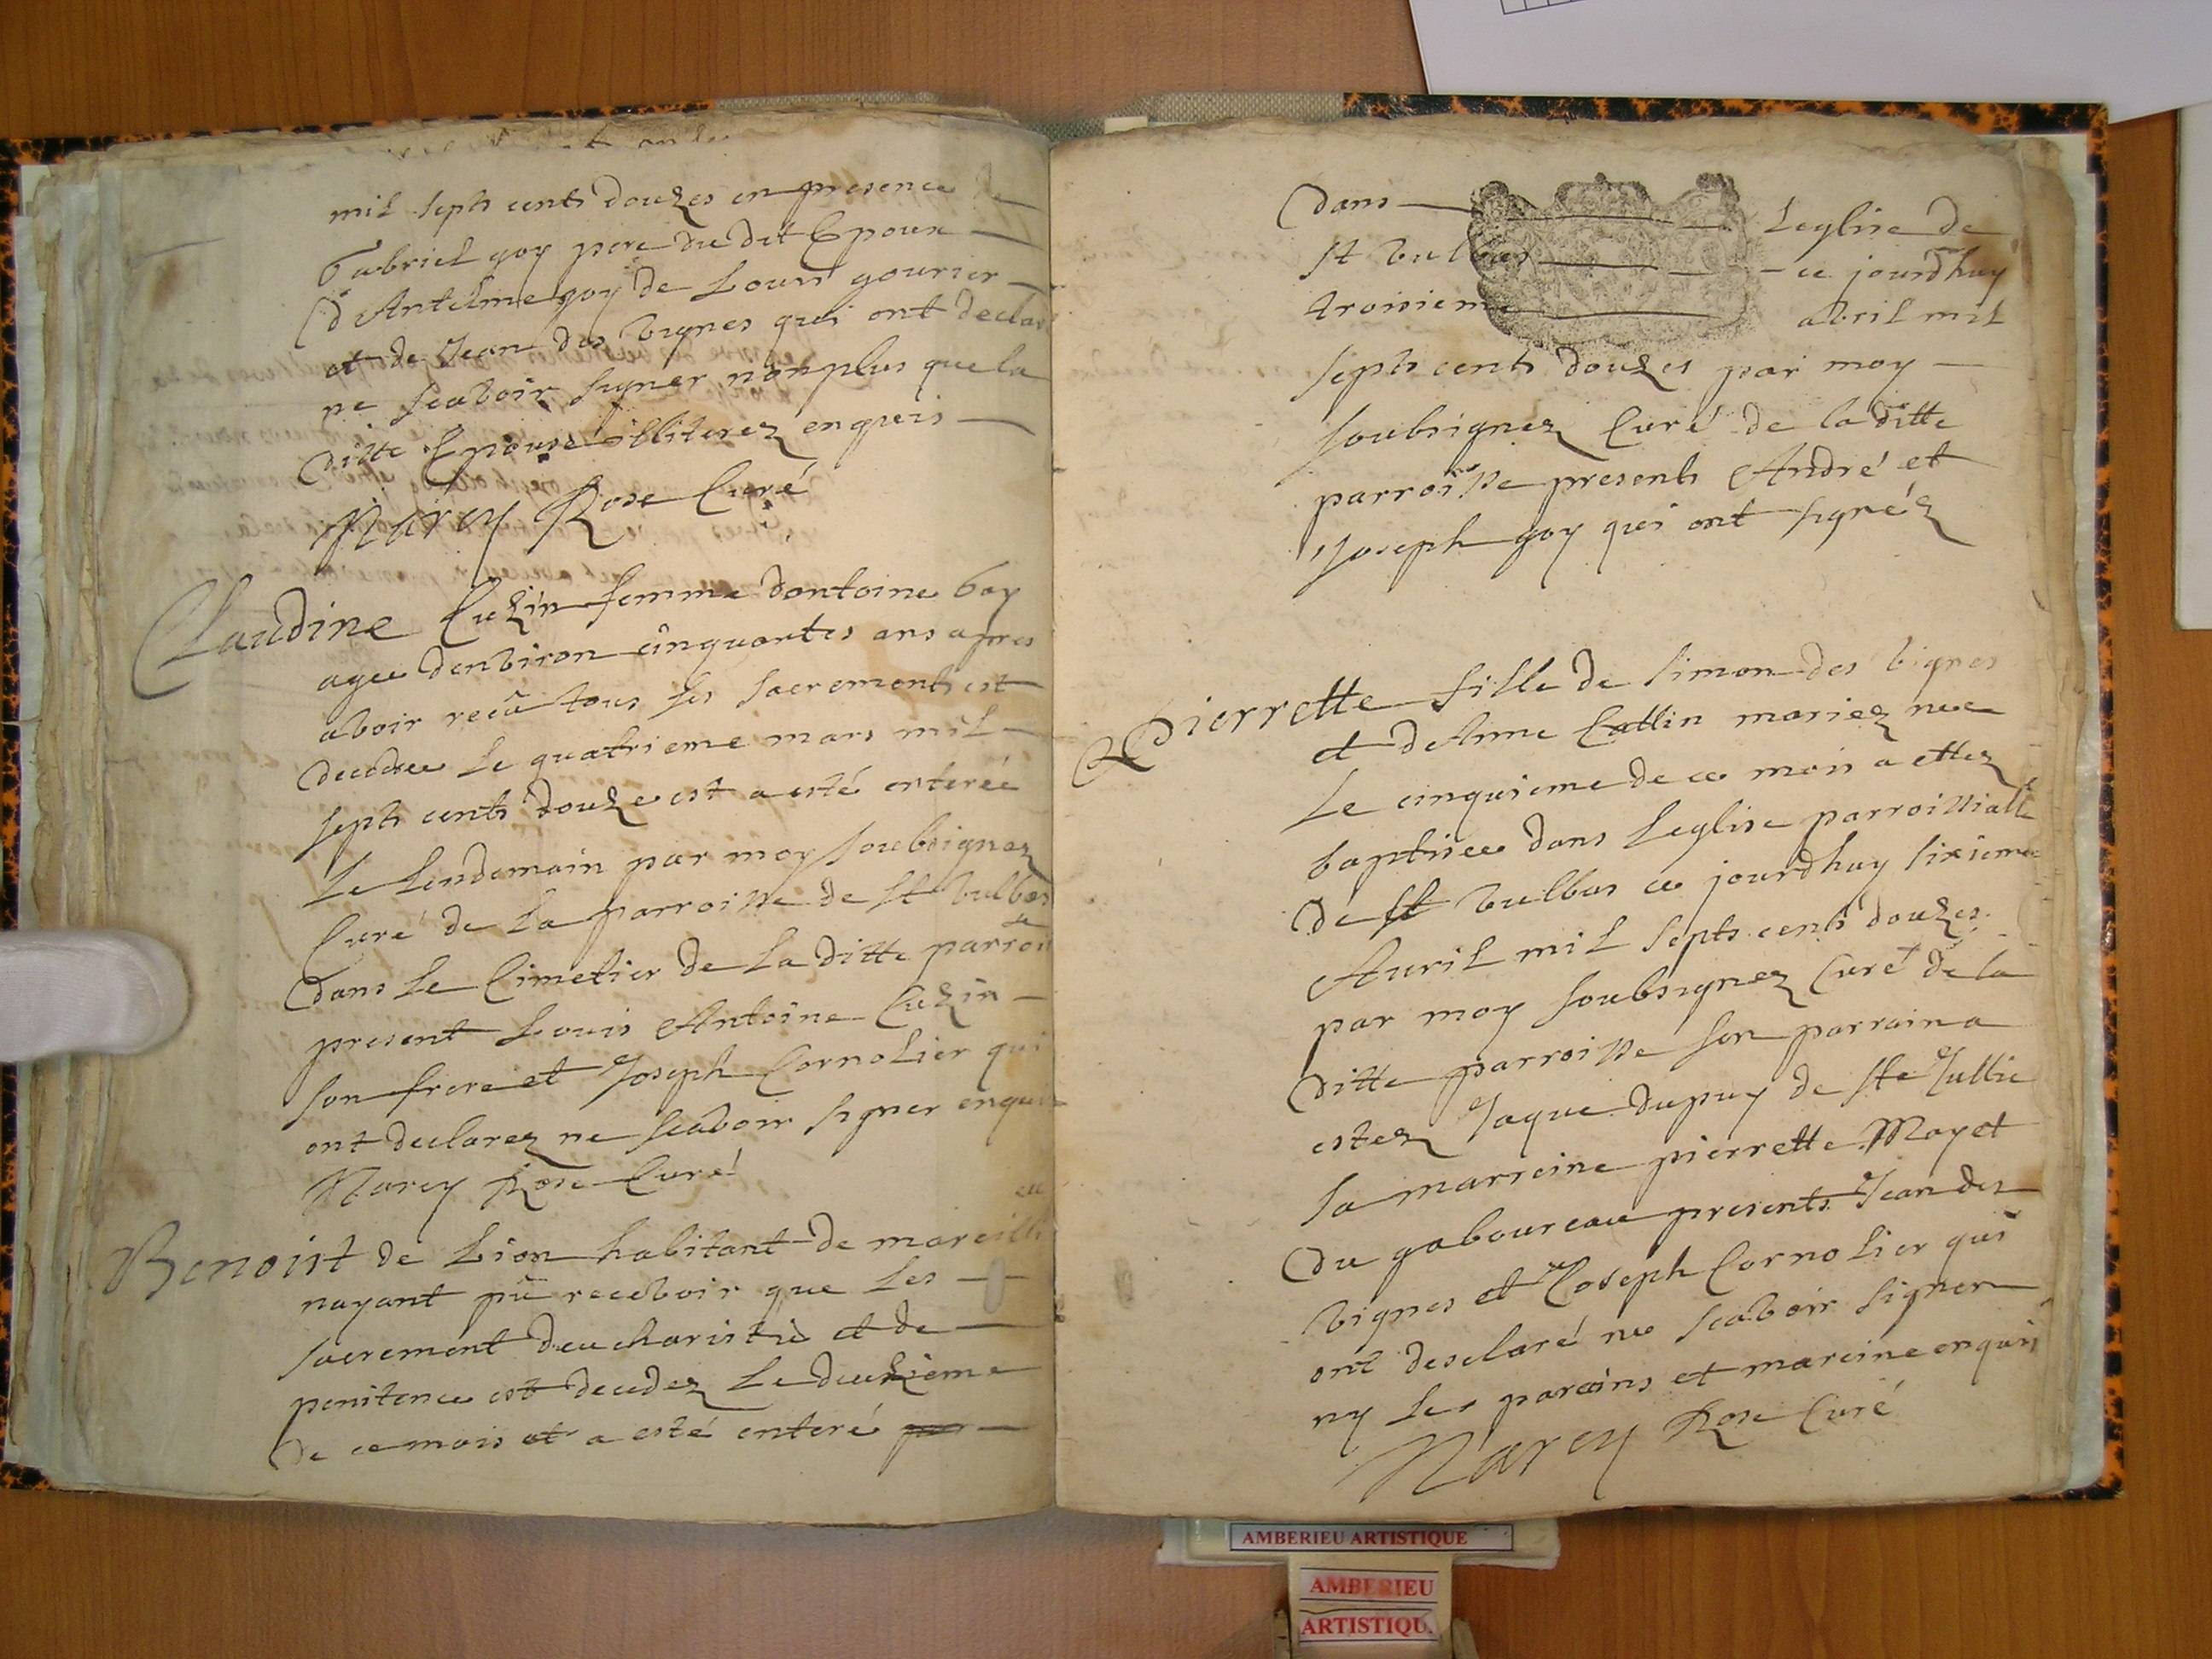 mil septs cents douzes en presence de
Gabriel goy pere du dit Epoux
d'Antelme goy de Louis gourier
et de Jean des vignes qui ont declaré
ne scavoir signer non plus que la
ditte Epouse illiterez enquis
Narcy Rose Curé
Claudine Cuzin femme dantoine Goy
agee denviron cinquantes ans apres
avoir reçû tous ses sacrements est
decedee le quatrieme mars mil
septs cents douze est a esté enterée
le lendemain par moy soubsignez
Curé de la parroisse de St vulbas
dans le Cimetier de la ditte parroisse
present Louis Antoine Cuzin
son frere et Joseph Cornolier qui
ont declarez ne scavoir signer enquis
Narcy Rose Curé
Benoist de Lion habitant de mareillieu
nayant pû recevoir que les
sacrement deucharistiè et de
penitence est decedez le deuxieme
de ce mois et a esté enteré par
dans Leglise de
St vulbas ce jourdhuy
troisieme abvril mil
septs cents douzes par moy
soubsignez Curé de la ditte
parroisse presents André et
Joseph goy qui ont signéz
Pierrette fille de simon des vignes
et deAnne Cattin mariez nee
Le cinquieme de ce mois a ettez
baptisee dans Leglise parroissialle
de St vulbas ce jourdhuy sixieme
Auril mil septs cents douzes
par moy soubsignez Curé de la
ditte parroisse son parrain a
estez Jaque dupuy de Ste Jullie
sa marreine pierrette Mayet
du gaboureau presents Jean des
vignes et Joseph Cornolier qui
ont desclaré ne scavoir signer
ny les parains et mareine enquis
Narcy Rose Curé
AMBERIEU ARTISTIQUE
AMBERIEU
ARTISTIQU